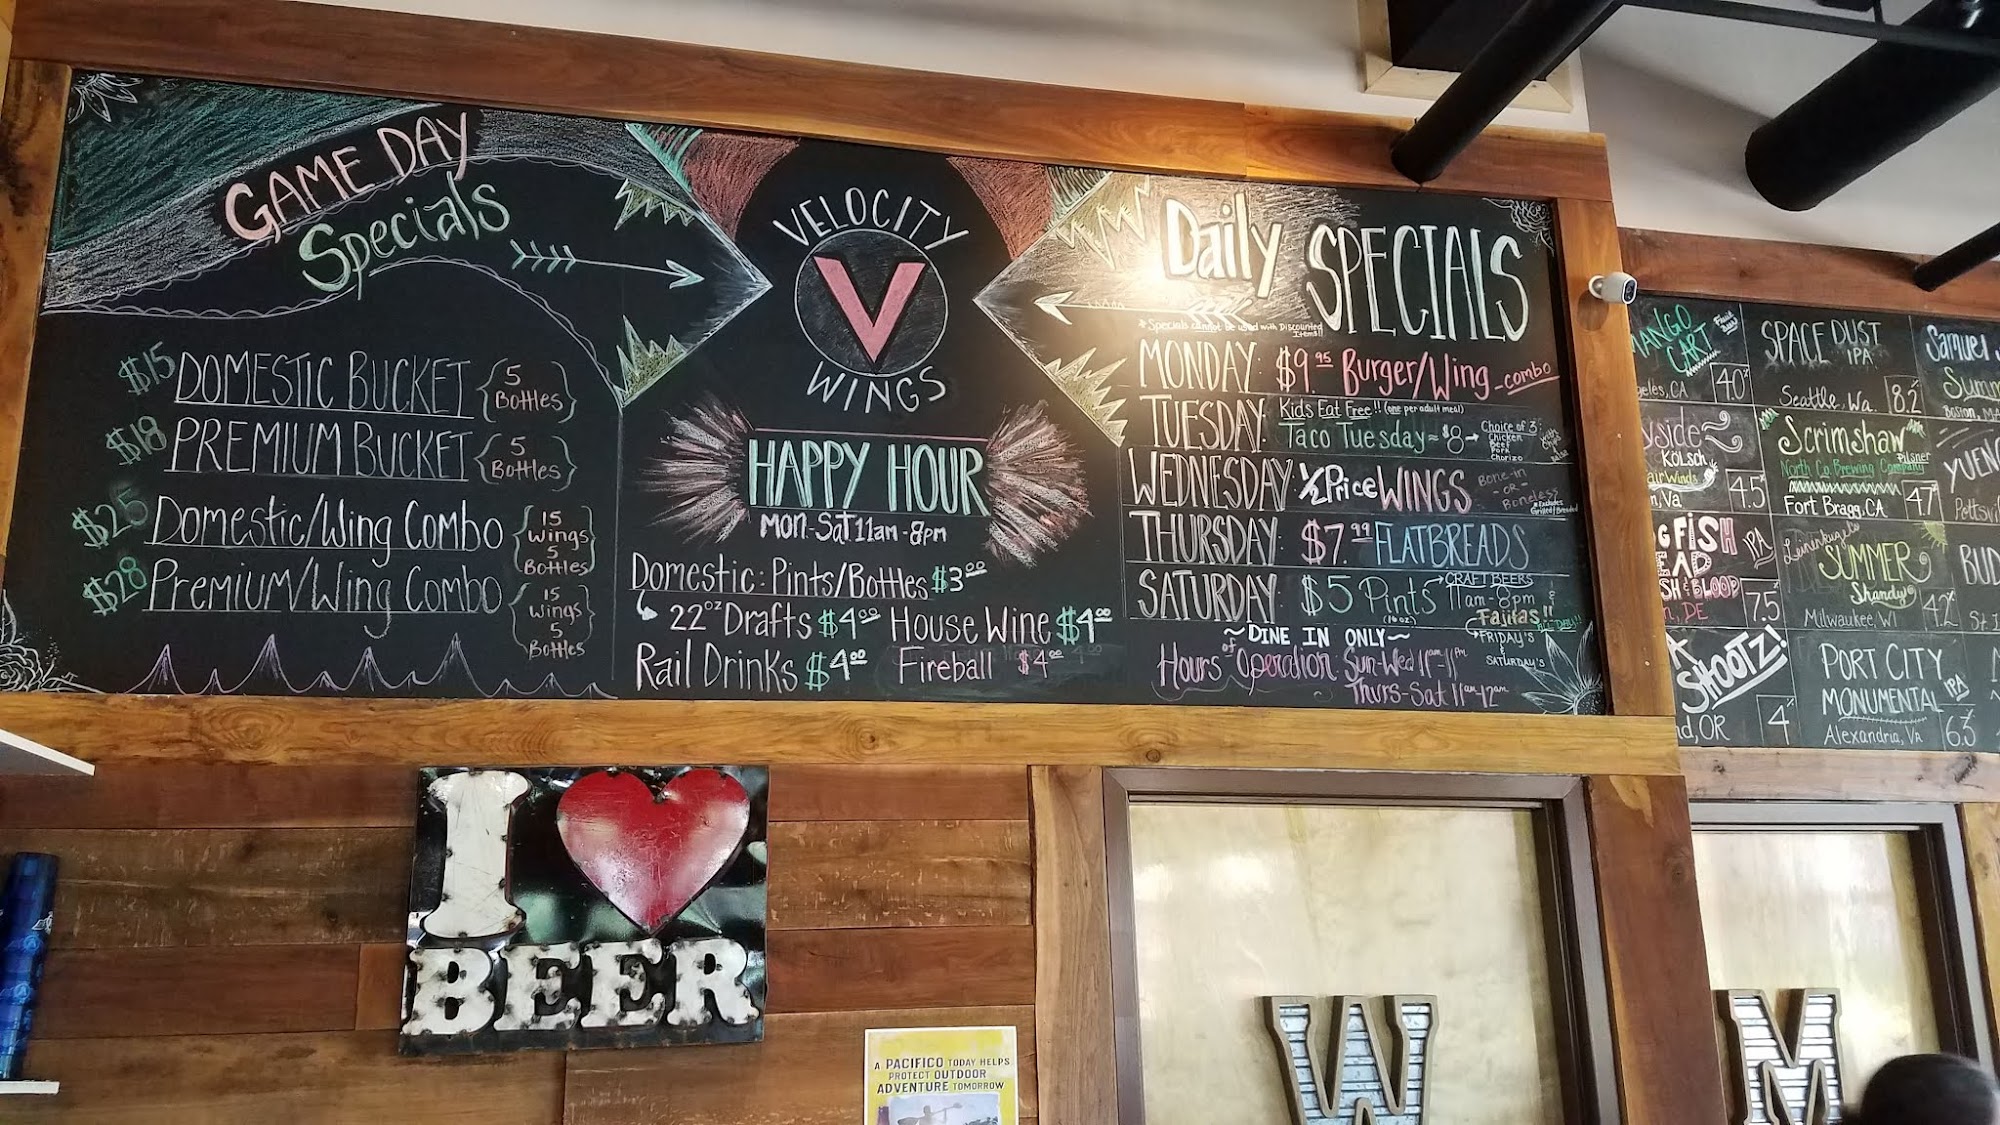 GAME DAY
Specials
$15 DOMESTIC BUCKET {5 Bottles}
$18 PREMIUM BUCKET {5 Bottles}
$25 Domestic/Wing Combo {15 Wings 5 Bottles}
$28 Premium/Wing Combo {15 Wings 5 Bottles}
VELOCITY
V
WINGS
HAPPY HOUR
Mon-Sat 11am-8pm
Domestic: Pints/Bottles $3.00
22oz Drafts $4.00 House Wine $4.00
Rail Drinks $4.00 Fireball $4.00
Daily SPECIALS
*Specials cannot be used with Discounted Items!!
MONDAY: $9.95 Burger/Wing-combo
TUESDAY: Kids Eat Free!! (one per adult meal)
Taco Tuesday ≈ $8 → Choice of 3:
Chicken
Beef
Pork
Chorizo
WEDNESDAY: 1/2 Price WINGS Bone-in
-OR-
Boneless
THURSDAY: $7.99 FLATBREADS
SATURDAY: $5 Pints (16oz) → CRAFT BEERS
11am-8pm &
Fajitas!!
ALL DAY!!
FRIDAY'S
&
SATURDAY'S
~DINE IN ONLY~
Hours of Operation: Sun-Wed 11am-11pm
Thurs-Sat 11am-12am
MANGO
CART
geles, CA 4.0%
SPACE DUST
IPA
Seattle, Wa. 8.2%
Samuel
Summ
Boston, MA
yside
KÖLSCH
airWinds
n, Va 4.5%
Scrimshaw
Pilsner
North Co. Brewing Company
Fort Bragg, CA 4.7%
YUENG
Pottsvil
G FISH
EAD IPA
SH & BLOOD
n, DE 7.5%
Leinenkugel's
SUMMER
Shandy
Milwaukee, WI 4.2%
BUD
St
SHOOTZ!
nd, OR 4%
PORT CITY
MONUMENTAL IPA
Alexandria, Va 6.3%
I
BEER
A PACIFICO TODAY HELPS
PROTECT OUTDOOR
ADVENTURE TOMORROW
W
M